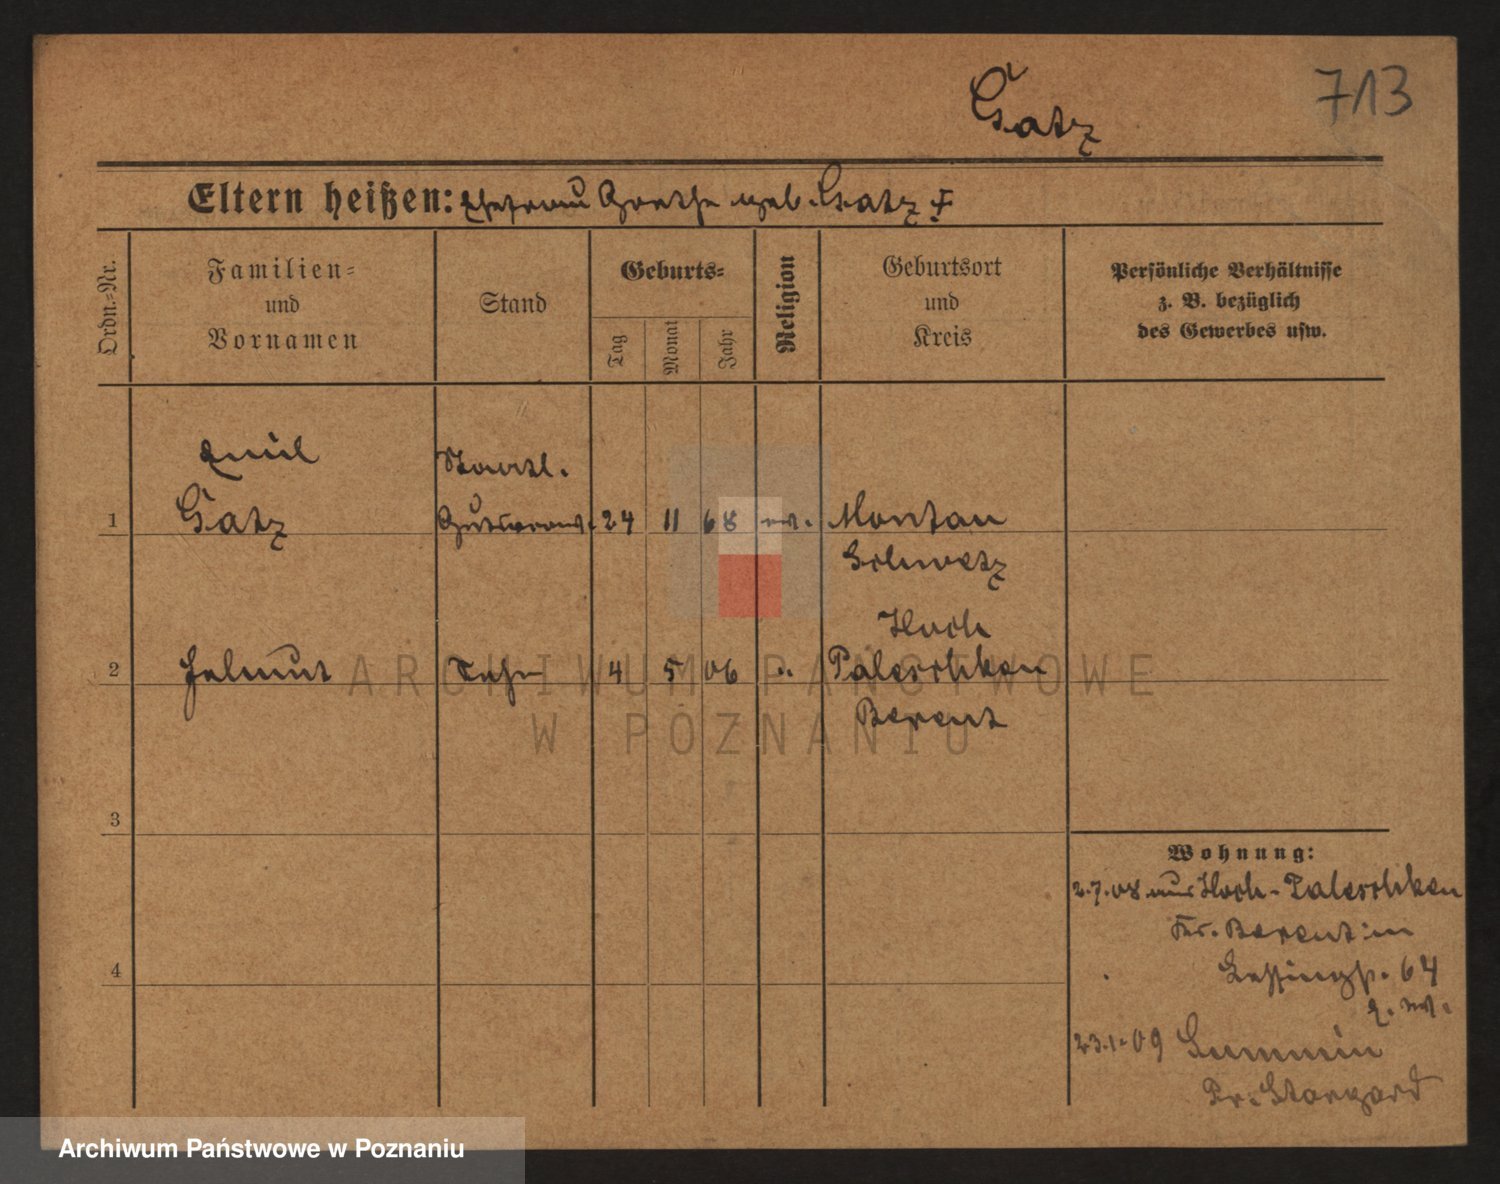 Gatz
713
Eltern heißen: Ehefrau Grethe geb. Gatz †
Ordn.-Nr.
Familien-
und
Vornamen
Stand
Geburts-
Tag
Monat
Jahr
Religion
Geburtsort
und
Kreis
Persönliche Verhältnisse
z. B. bezüglich
des Gewerbes usw.
Emil
Gatz
1
24 11 68 ev. Montau
Schwetz
Hoch
2 Helmut Sohn 4 5 06 " Paleschken
Berent
3
4
Wohnung:
2.7.08 aus Hoch-Paleschken
Kr. Berent in
Lessingst. 64
23.1.09
Pr. Stargard
ARCHIWUM PAŃSTWOWE
W POZNANIU
Archiwum Państwowe w Poznaniu